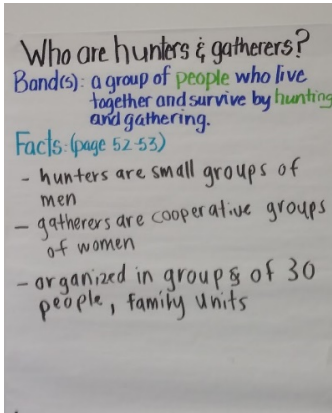 Who are hunters & gatherers?
Band(s): a group of people who live
together and survive by hunting
and gathering.
Facts: (page 52-53)
- hunters are small groups of
men
- gatherers are cooperative groups
of women
- organized in groups of 30
people, family units